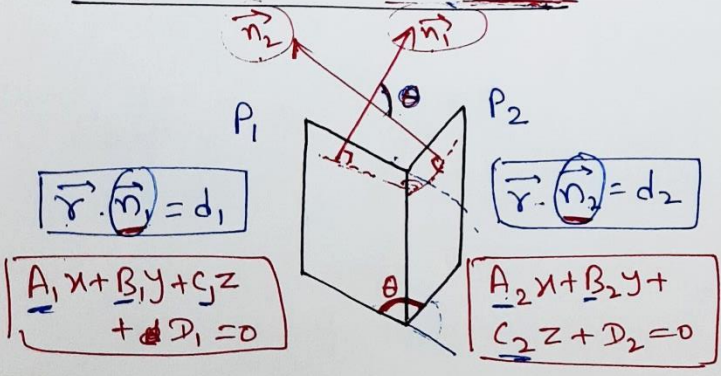 n⃗₂ n⃗₁
θ
P₁ P₂
r⃗ . n⃗₁ = d₁ r⃗ . n⃗₂ = d₂
A₁x+B₁y+C₁z
+ D₁ = 0
θ
A₂x+B₂y+
C₂z+D₂=0